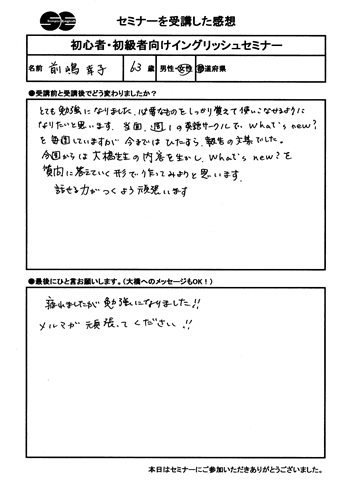 セミナーを受講した感想
初心者・初級者向けイングリッシュセミナー
名前 前嶋 幸子 63 歳 男性・女性 都道府県
●受講前と受講後でどう変わりましたか?
とても勉強になりました。必要なものをしっかり覚えて使いこなせるように
なりたいと思います。当面、週1の英語サークルで、What's new?
を毎回していますが、今まではひたすら、報告の文章でした。
今回からは大橋先生の内容を生かし、What's new? を
質問に答えていく形で作ってみようと思います。
話せる力がつくよう頑張います
●最後にひと言お願いします。(大橋へのメッセージもOK!)
疲れましたが勉強になりました!!
メルマガ頑張ってください!!
本日はセミナーにご参加いただきありがとうございました。